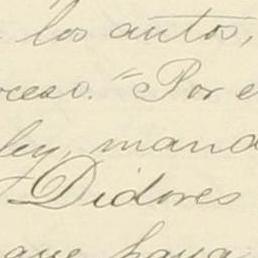 a los autos,
ceso." Por e
ley, mand
Didores
que haya